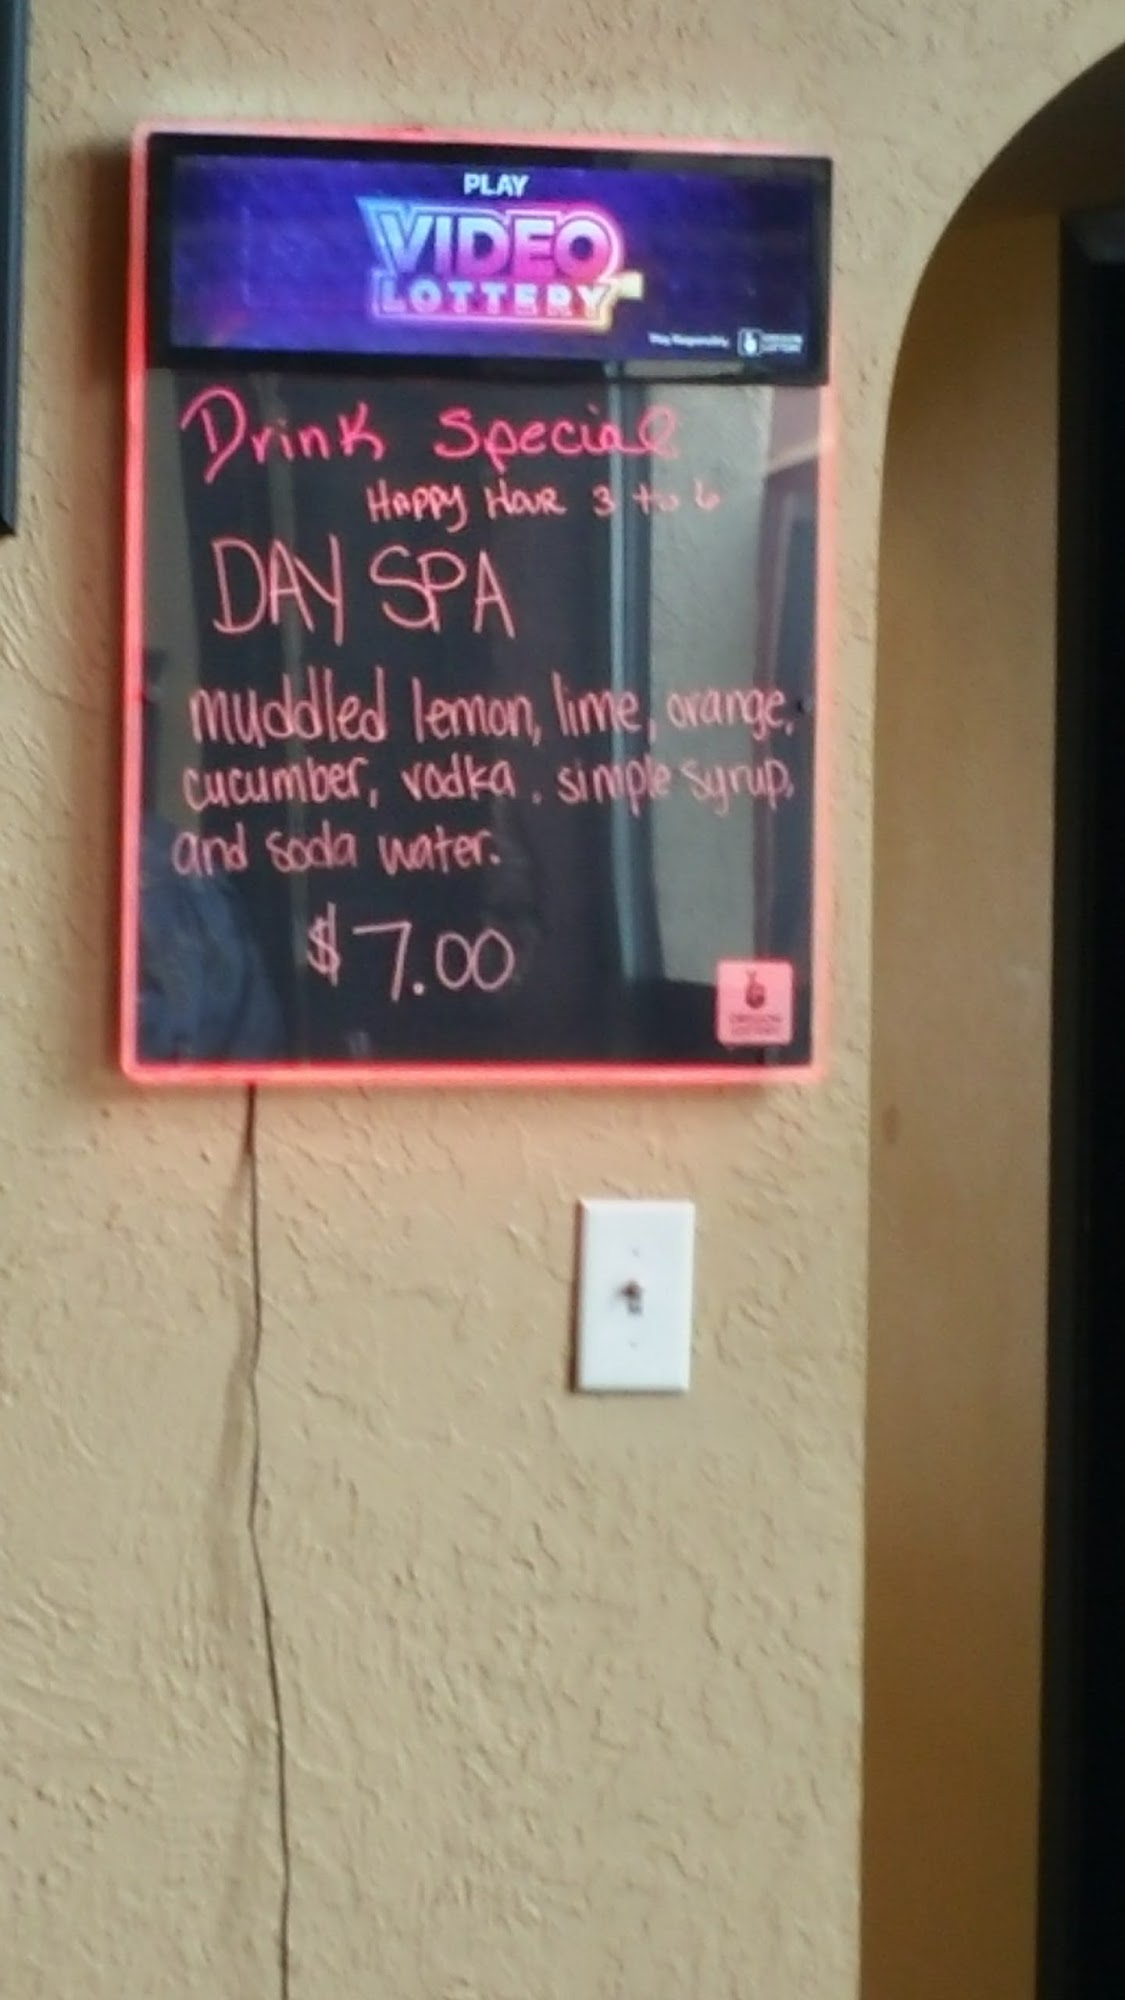 PLAY
VIDEO
LOTTERY
Play Responsibly
OREGON
LOTTERY
Drink Special
Happy Hour 3 to 6
DAY SPA
muddled lemon, lime, orange,
cucumber, vodka, simple syrup,
and soda water.
$7.00
OREGON
LOTTERY